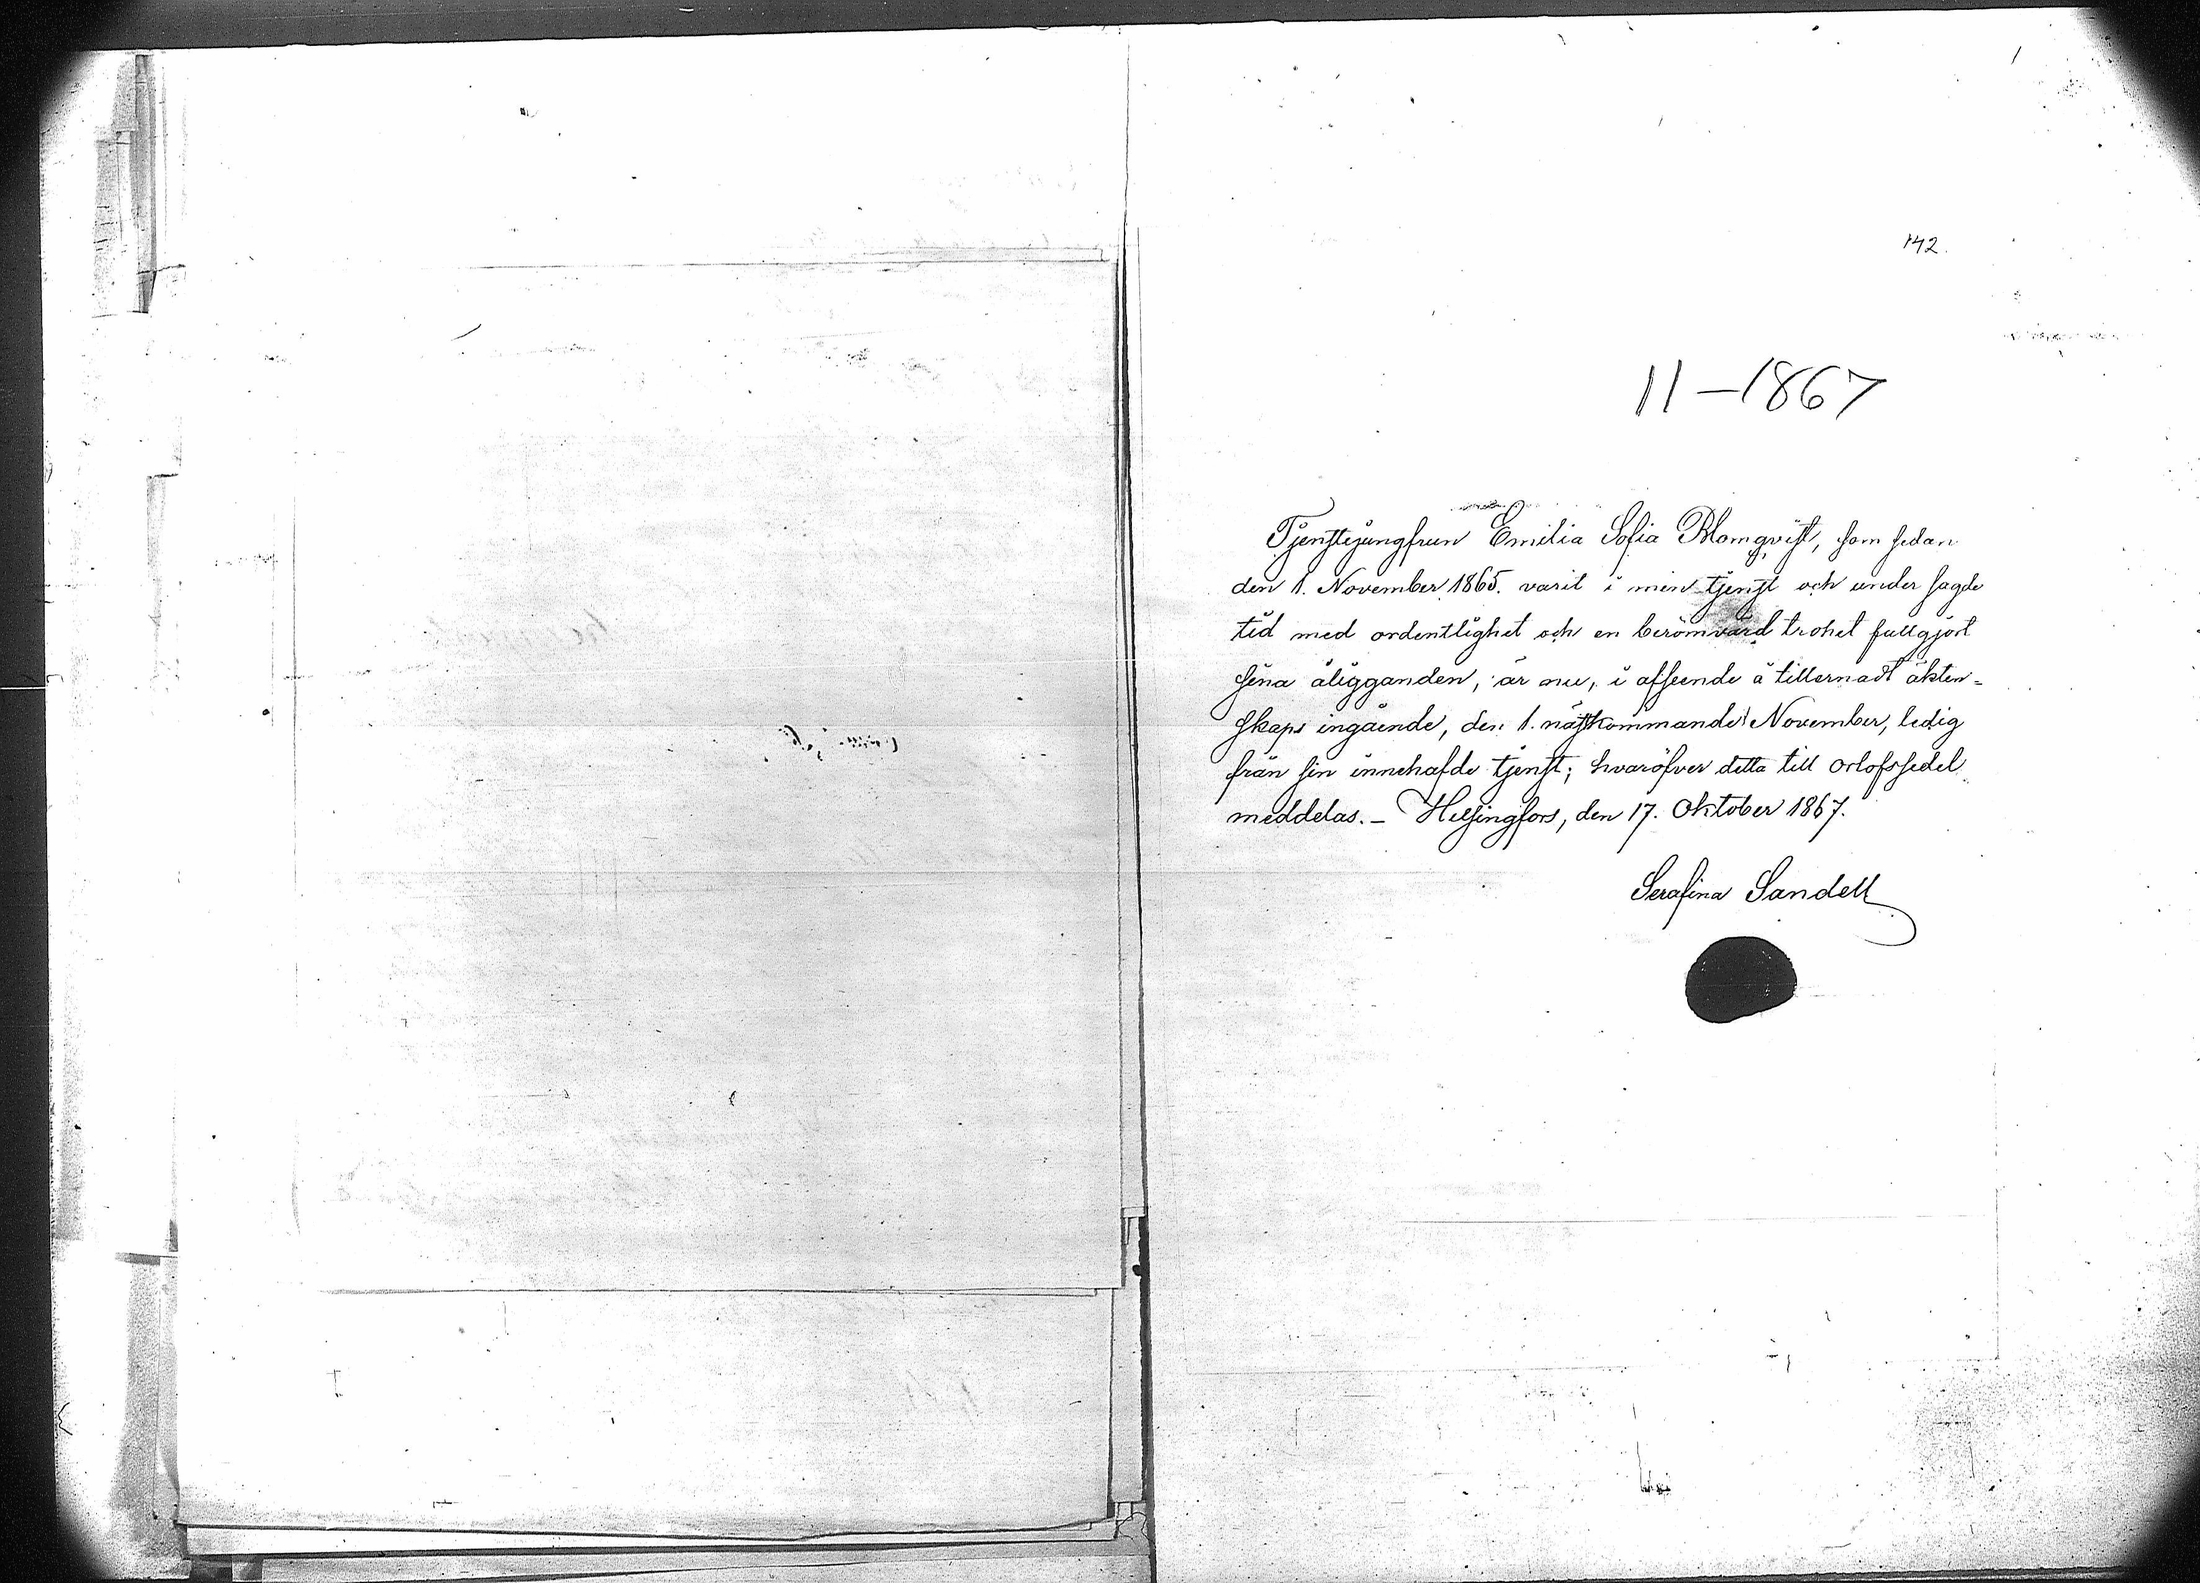 142.
11-1867
Tjenstejungfrun Emilia Sofia Blomqvist, som sedan
den 1. November 1865. varit i min tjenst och under sagde
tid med ordentlighet och en berömvärd trohet fullgjort
sina åligganden, är nu, i afseende å tillernadt äkten=
skaps ingående, den 1. nästkommande November, ledig
från sin innehafde tjenst; hvaröfver detta till orlofssedel
meddelas. - Helsingfors, den 17. Oktober 1867.
Serafina Sandell